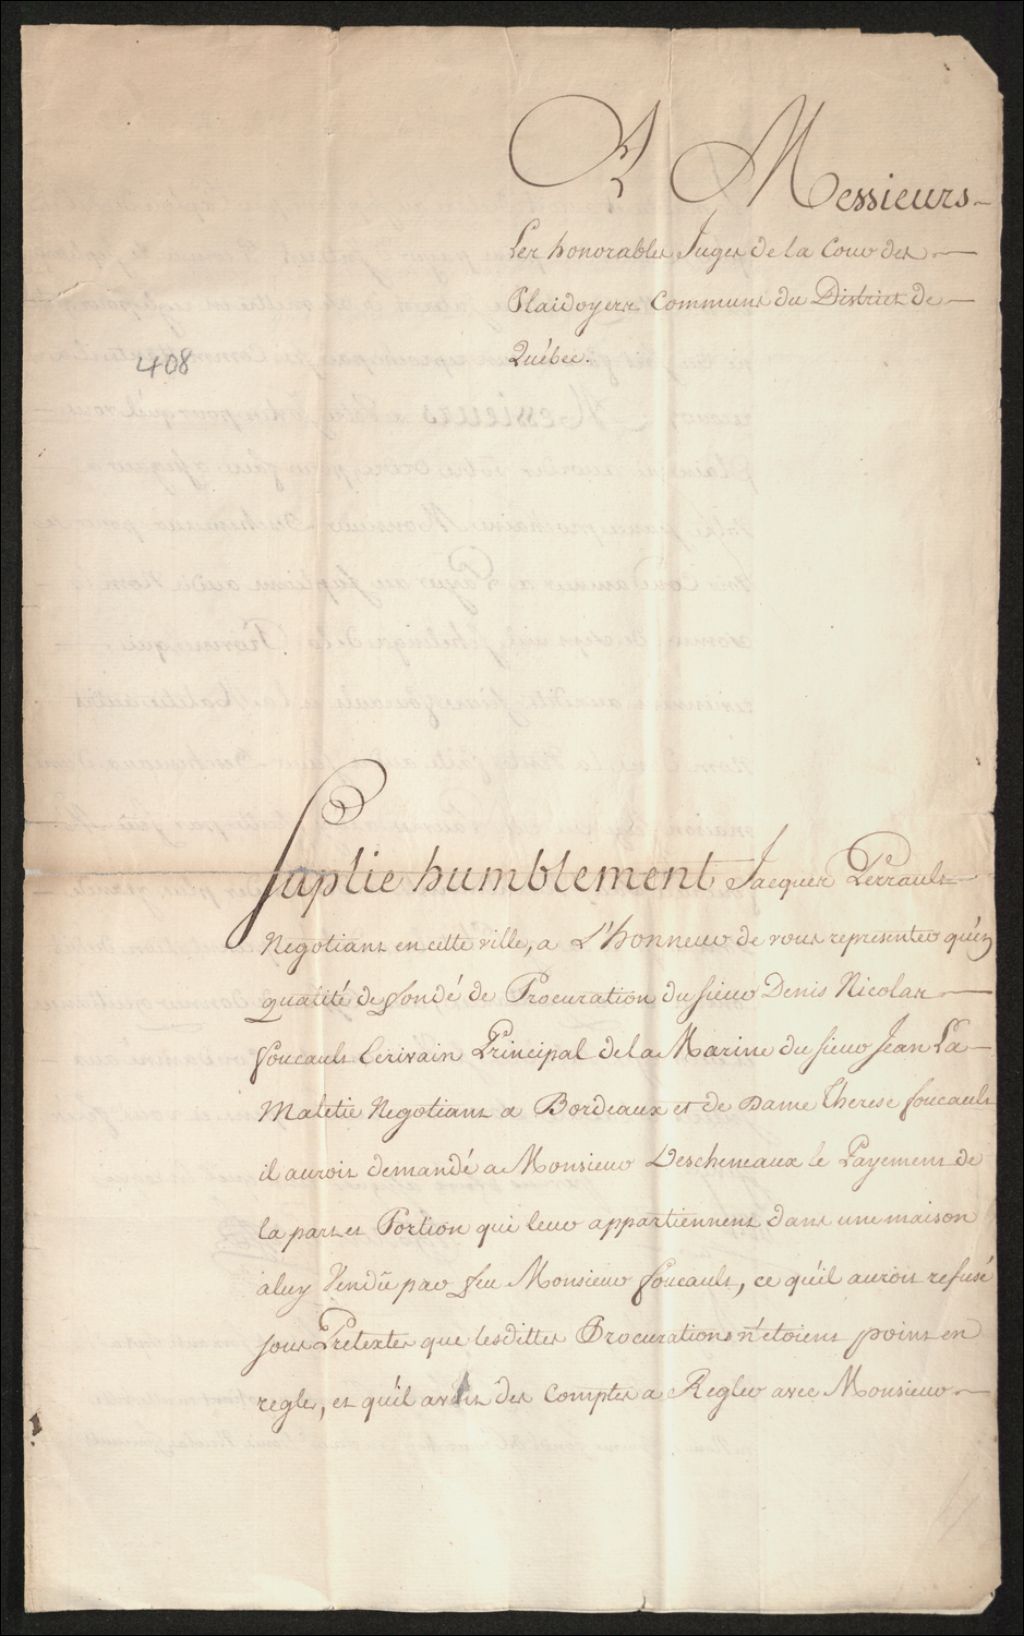 A Messieurs
Les honorables Juges de la Cour des
Plaidoyers Communs du District de
Québec.
408
Suplie humblement Jacques Perrault
Negotiant en cette ville, a L'honneur de vous representer qu'en
qualité de fondé de Procuration du sieur Denis Nicolas
foucault Ecrivain Principal de la Marine du sieur Jean La
Maletie Negotiant a Bordeaux et de Dame Therese foucault
il auroit demandé a Monsieur Descheneaux le Payement de
la part et Portion qui leur appartiennent dans une maison
a luy Vendüe par feu Monsieur foucault, ce qu'il auroit refusé
sous Pretextes que lesdittes Procurations n'etoient point en
regles, et qu'il avoit des Comptes a Regler avec Monsieur